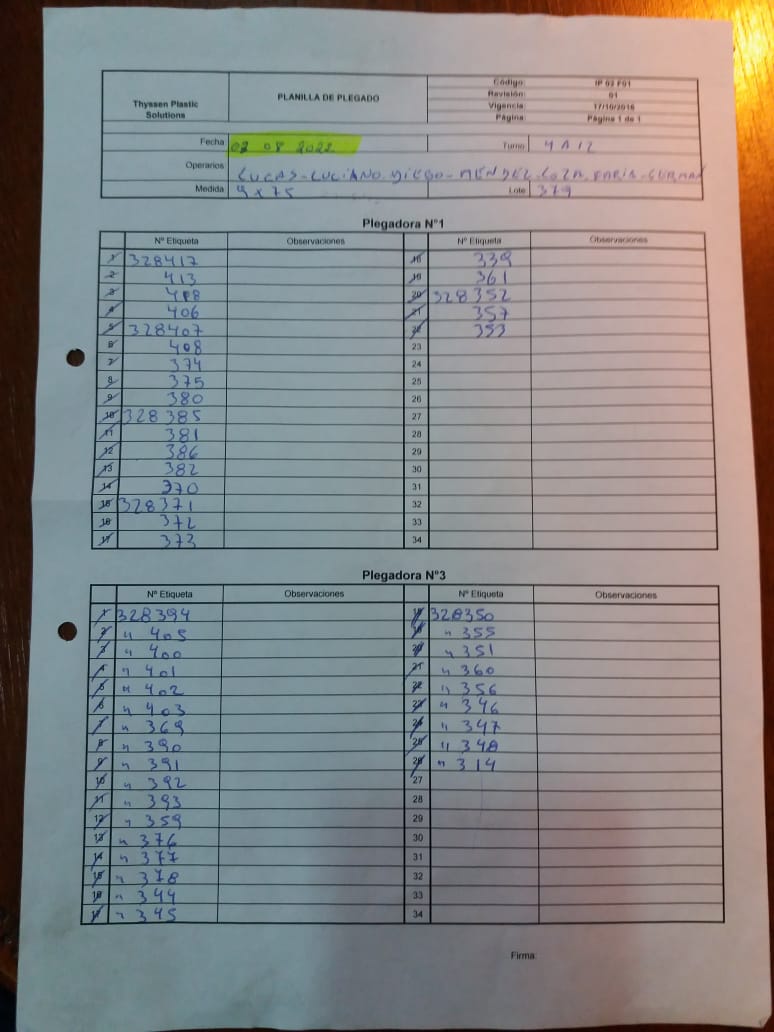 Thyssen Plastic Solutions
PLANILLA DE PLEGADO
Código: IP 02 F01
Revisión: 01
Vigencia: 17/10/2016
Página: Página 1 de 1
Fecha 02 08 2022 Turno 4 A 12
Operarios LUCAS-LUCIANO. DIEGO-MENDEZ. FARIA-GUZMAN
Medida 9 x 75 Lote 379
Plegadora N°1
N° Etiqueta Observaciones N° Etiqueta Observaciones
1 328417 18 339
2 413 19 361
3 20 328352
4 406 21 357
5 328407 22 353
6 408 23
7 374 24
8 375 25
9 380 26
10 328385 27
11 381 28
12 386 29
13 382 30
14 370 31
15 328371 32
16 372 33
17 373 34
Plegadora N°3
N° Etiqueta Observaciones N° Etiqueta Observaciones
1 328394 18 328350
2 " 405 19 " 355
3 " 400 20 " 351
4 " 401 21 " 360
5 " 402 22 " 356
6 " 403 23 " 346
7 " 369 24 " 347
8 " 390 25 " 348
9 " 391 26 " 314
10 " 392 27
11 " 393 28
12 " 359 29
13 " 376 30
14 " 377 31
15 " 378 32
16 " 344 33
17 " 345 34
Firma: